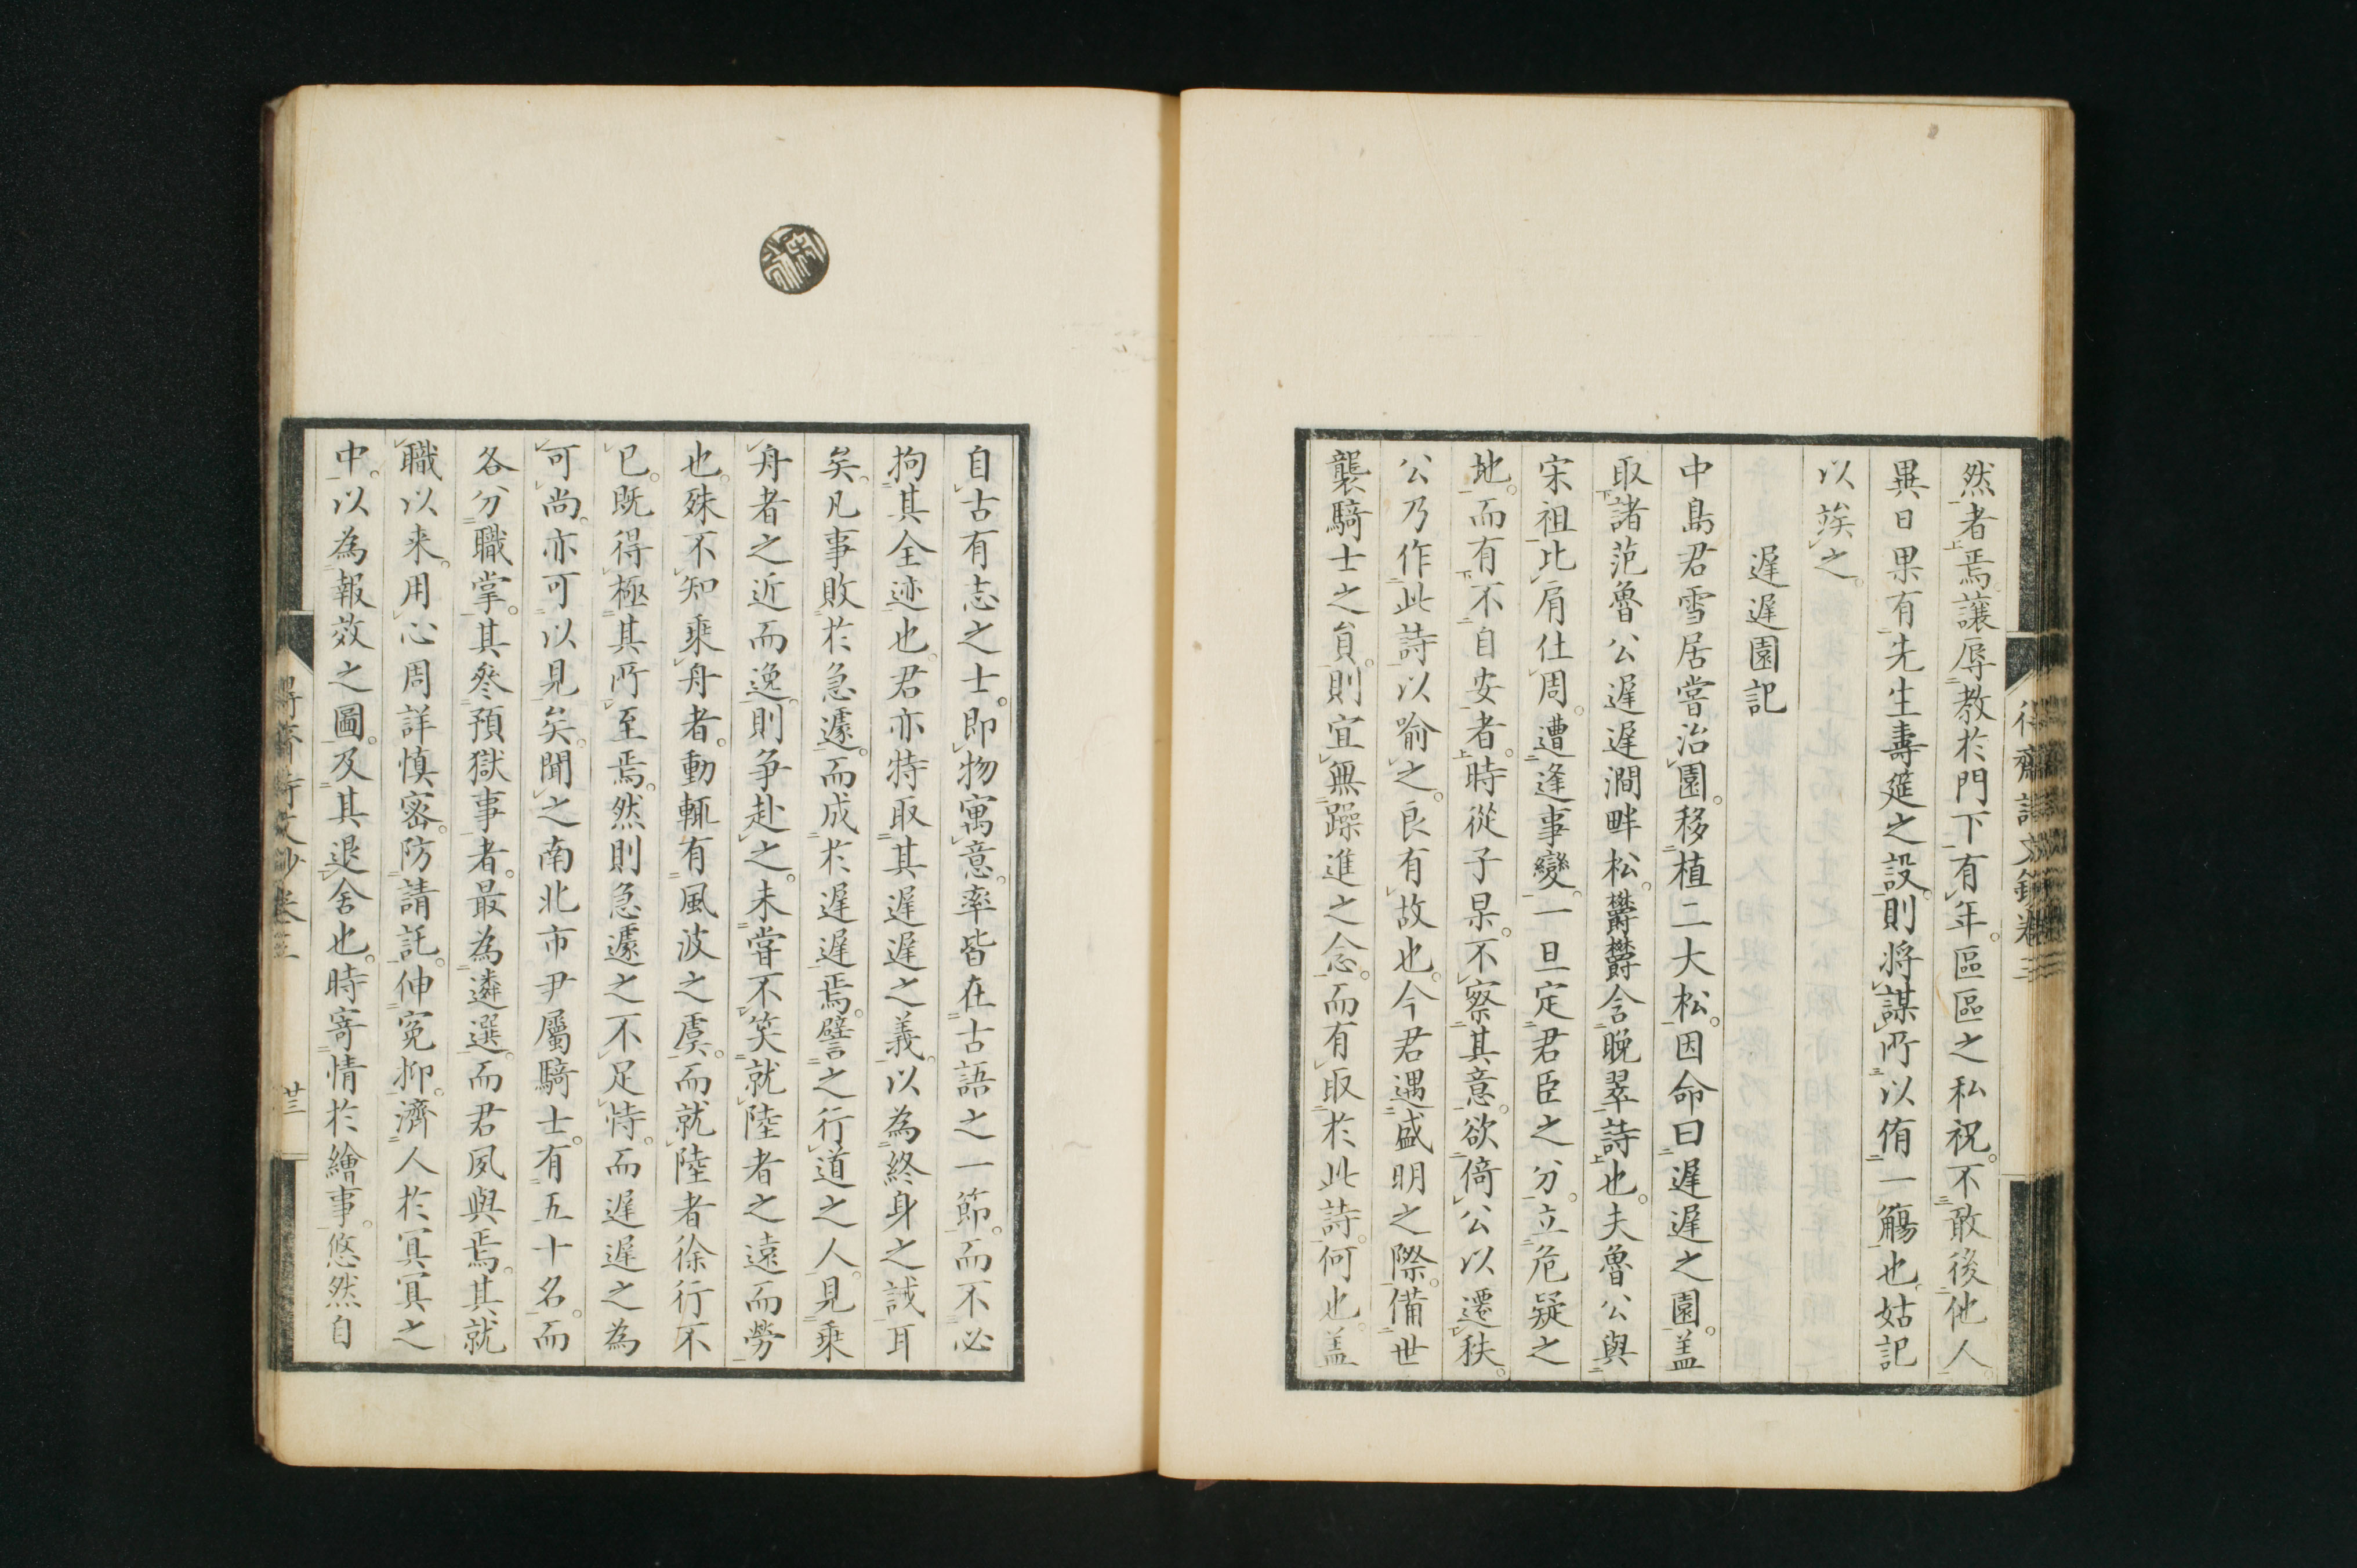 然者焉讓辱教於門下有年。區區之私祝。不敢後他人。
異日果有先生壽筵之設。則將謀所以侑一觴也。姑記
以竢之。
遲遲園記
中島君雪居嘗治園。移植二大松。因命曰遲遲之園。盖
取諸范魯公遲遲澗畔松。欝欝含晚翠詩也。夫魯公與
宋祖比肩仕周。遭逢事變。一旦定君臣之分。立危疑之
地。而有不自安者。時從子杲。不察其意。欲倚公以遷秩。
公乃作此詩以喻之。良有故也。今君遇盛明之際。備世
襲騎士之員。則宜無躁進之念。而有取於此詩。何也。盖
自古有志之士。即物寓意。率皆在古語之一節。而不必
拘其全迹也。君亦特取其遲遲之義。以為終身之誡耳
矣。凡事敗於急遽。而成於遲遲焉。譬之行道之人。見乗
舟者之近而逸。則争赴之。未嘗不笑就陸者之遠而勞
也。殊不知乗舟者。動輒有風波之虞。而就陸者徐行不
已。既得極其所至焉。然則急遽之不足恃。而遲遲之為
可尚。亦可以見矣。聞之南北市尹屬騎士。有五十名。而
各分職掌。其叅預獄事者。最為遴選。而君夙與焉。其就
職以来。用心周詳慎宻。防請託。伸冤抑。濟人於冥冥之
中。以為報效之圖。及其退舍也。時寄情於繪事。悠然自
卷三
廿三